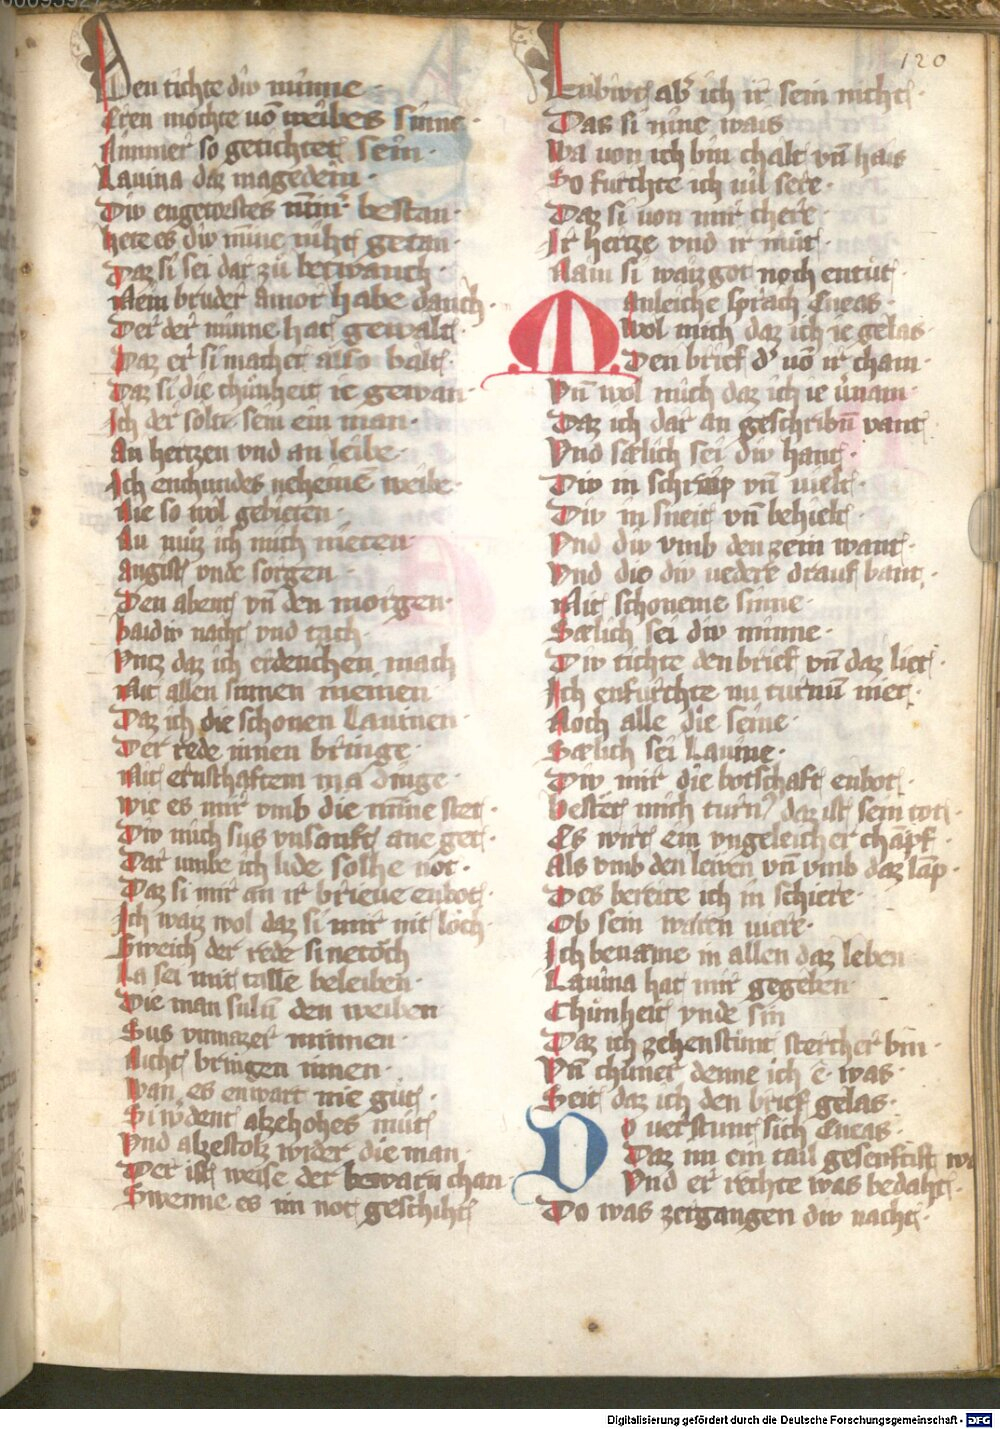 120
Den tichte div minne
Eren mochte uõ weibes sinne
Nimmer so getichtet sein
Lauina daz magedein
Div engetorstes nimer bestan
hete es div minne niht getan
Daz si sei dar zů betwanch
Mein bruder Amor habe danch
Der der minne hat gewalt
Daz er si machet also balt
Daz si die chůnheit ie gewan
Ich der solte sein ein man
An hertzen vnd an leibe
Ich enchundes neheinē weibe
Nie so wol gebieten
Nu muz ich mich nieten
Angist vnde sorgen
Den abent vñ den morgen
baidiv nacht vnd tach
Vntz daz ich erdenchen mach
Mit allen sinnen meinen
Daz ich die schonen Lauinen
Der rede innen bringe
Mit ernsthaftem dinge
Wie es mir vmb die minne stet
Div mich sus vnsanft ane get
Dar vmbe ich lide solhe not
Daz si mir an ir brieue enbot
Ich waiz wol daz si mir nit loch
Sweich der rede si netoch
La sei mit beleiben
Die man suln den weiben
Sus vnmazer minnen
Nicht bringen innen
Wan es enwart nie gůt
Si wdent alzehohes můt
Vnd alzestolz wider die man
Der ist weise der bewarn chan
Swenne es im not geschiht
Enbiwt ab ich ir sein nicht
Das si nine wais
Wa uon ich bin chalt vñ hais
So furchte ich uil sere
Daz si uon mir chere
Ir hertze vnd ir můt
Nain si waiz got noch entůt
Anleiche sprach Eneas
Wol mich daz ich ie gelas
Den brief d' uõ ir cham
Vñ wol mich daz ich ie ůnam
Daz ich dar an geschribñ vant
Vnd sælich sei div hant
Div in schraip vñ uielt
Div in sneit vñ behielt
Vnd div vmb den zein want
Vnd die div uedere drauf bant
Mit schoneme sinne
Sælich sei div minne
Div tichte den brief vñ daz liet
Ich enfurchte nu turnū niet
Noch alle die seine
Sælich sei Lauine
Div mir die botschaft enbot
bestet mich turn' daz ist sein tot
Es wirt ein vngeleicher champf
Als vmb den lewen vñ vmb daz lāp
Des bereite ich in schiere
Ob sein waren viere
Ich benæme in allen daz leben
Lauina hat mir gegeben
Chůnheit vnde sin
Daz ich zehenstunt stercher bin
Vñ chůner denne ich ê was
Seit daz ich den brief gelas
Do uerstunt sich Eneas
Daz im ein tail gesenftist
Vnd er rechte was bedaht
Do was zergangen div nacht
Digitalisierung gefördert durch die Deutsche Forschungsgemeinschaft - DFG